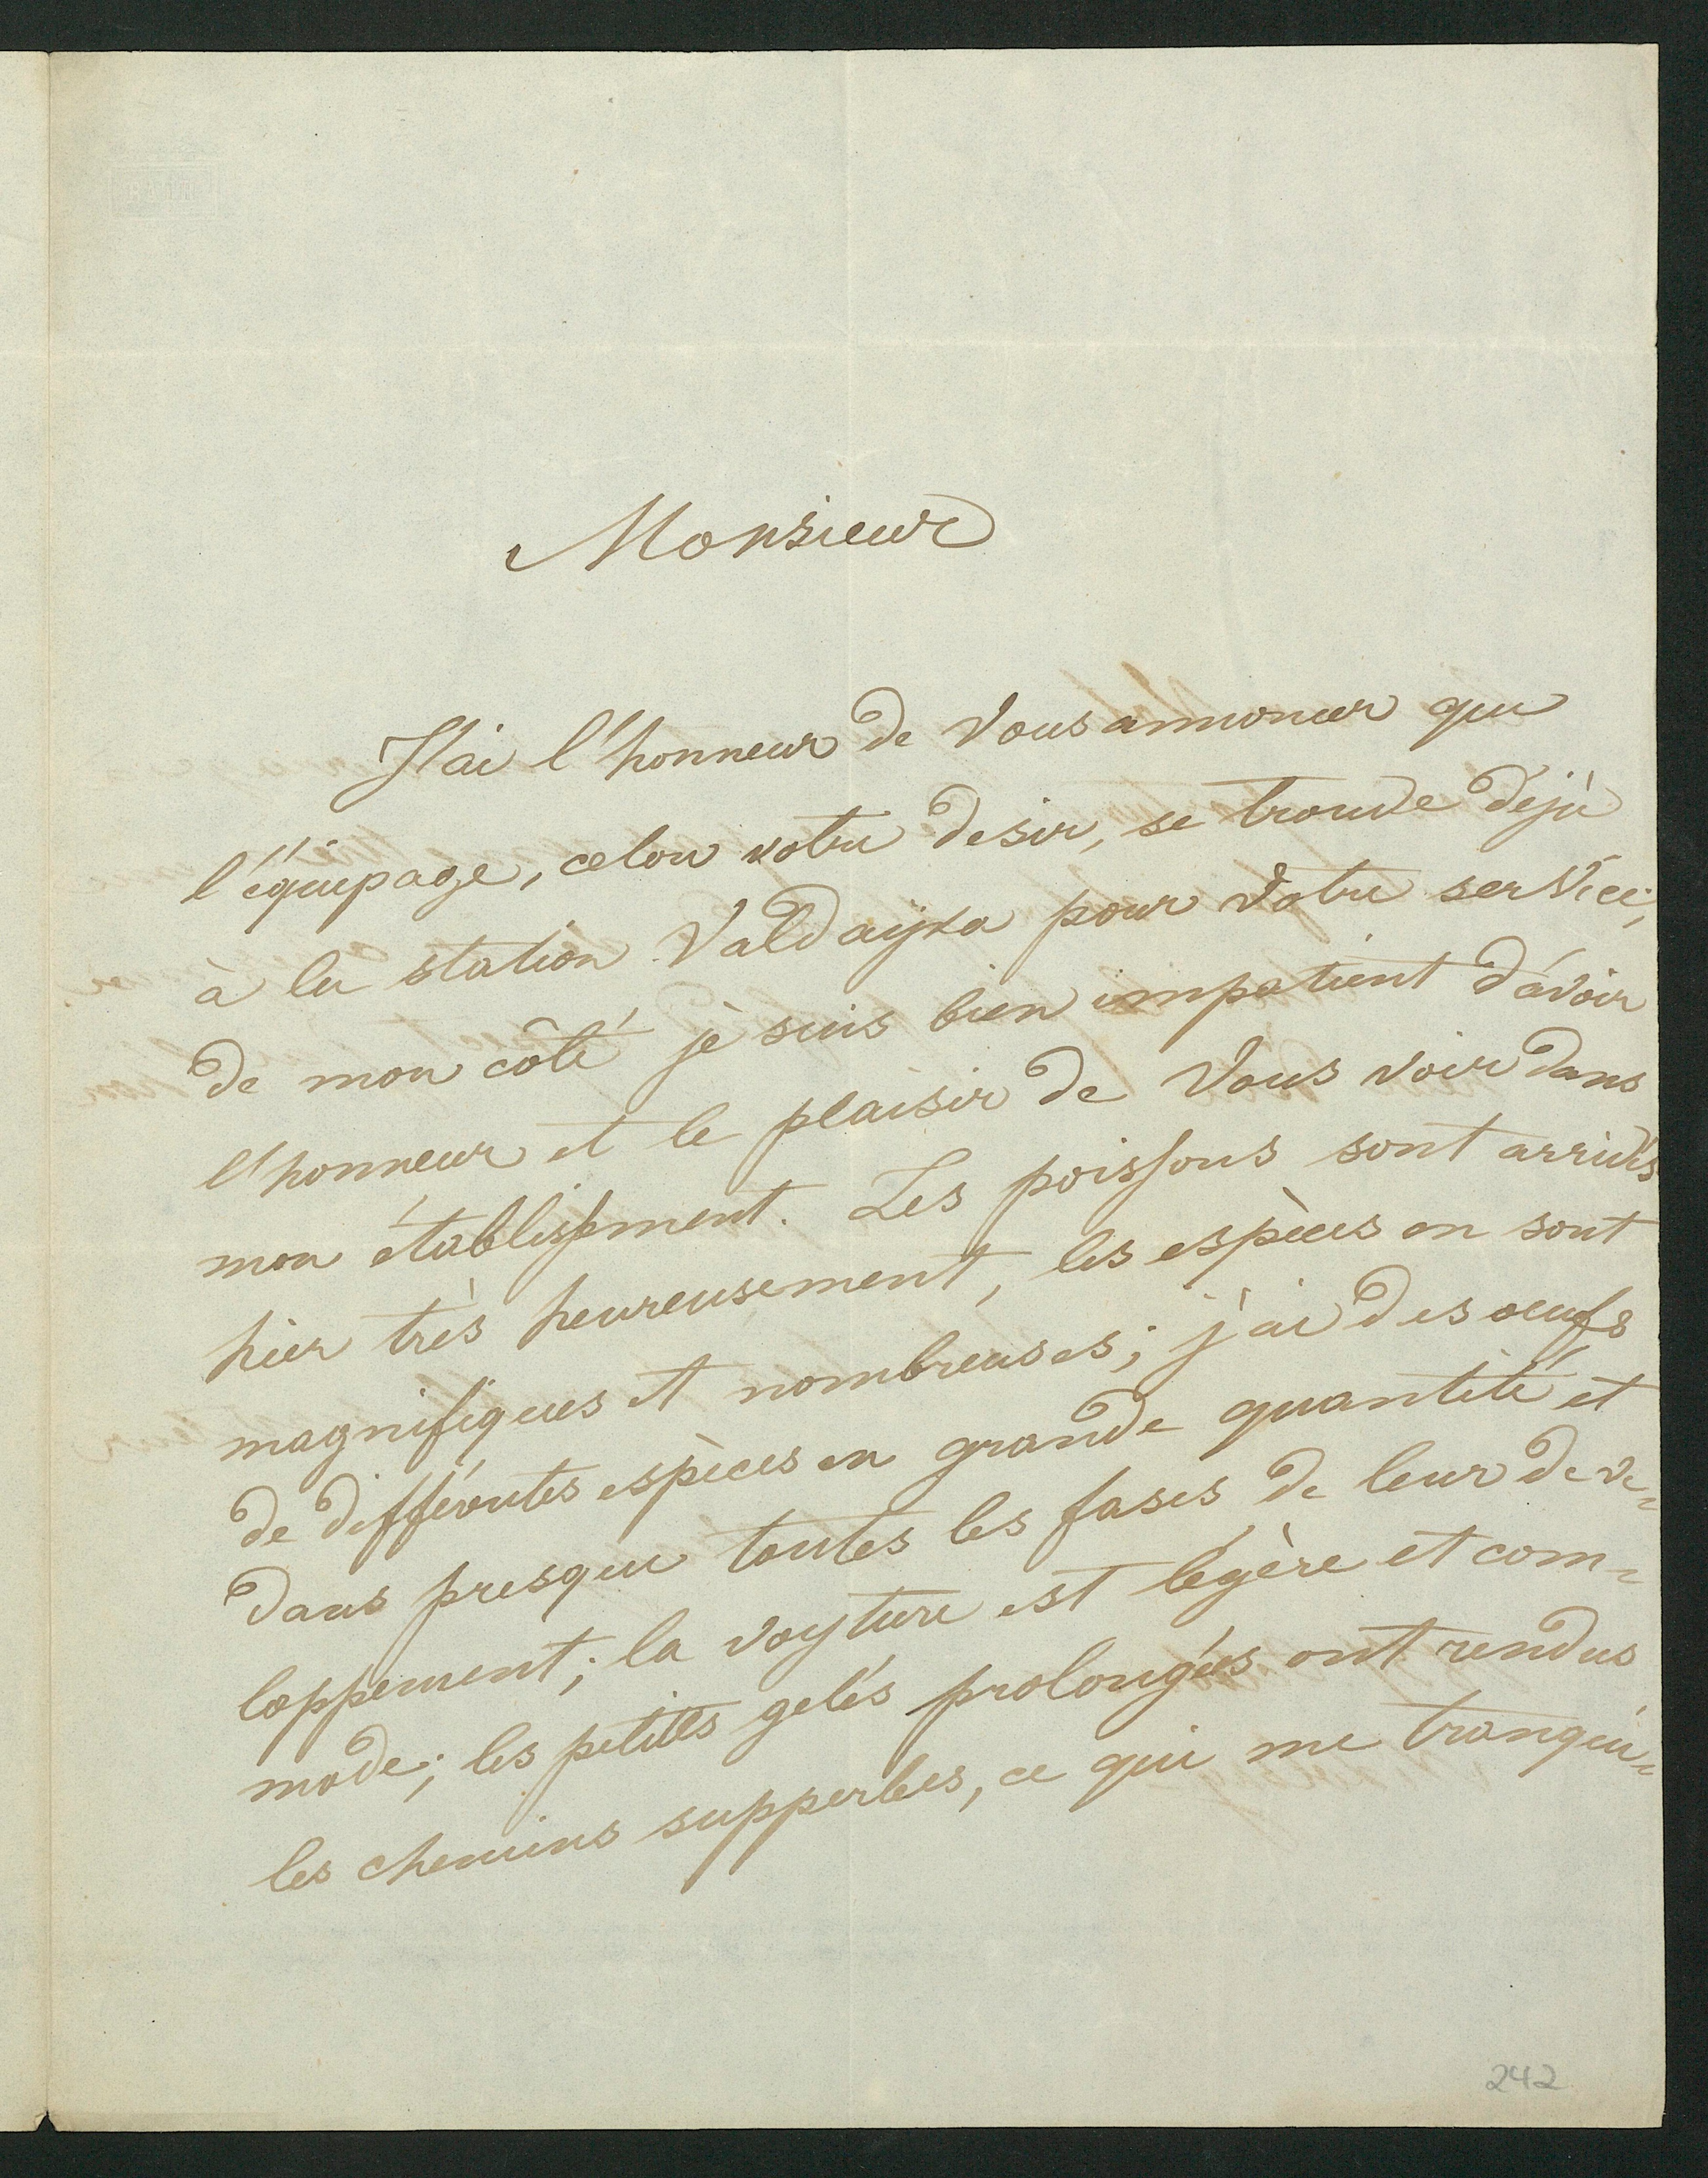 Monsieur
J'ai l'honneur de Vous annoncer que
l'équipage, celon votre desir, se trouve déjà
à la station Valdayka pour Votre service;
de mon côté je suis bien impatient d'avoir
l'honneur et le plaisir de Vous voir dans
mon établissement. Les poissons sont arrivés
hier très heureusement, les espèces en sont
magnifiques et nombreuses; j'ai des oeufs
de différentes espèces en grande quantité et
dans presque toutes les fases de leur deve-
loppement; la voyture est légère et com-
mode; les petites gelés prolongés ont rendus
les chemins supperbes, ce qui me tranqui-
242